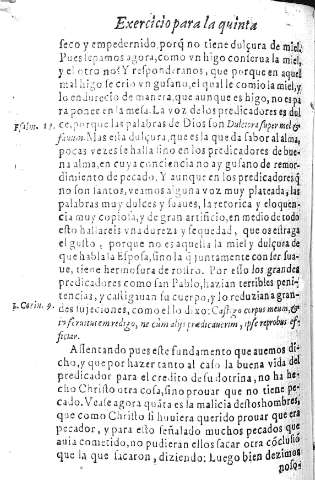 Exercicio para la quinta
seco y empedernido, porq̃ no tiene dulçura de miel.
Pues sepamos agora, como vn higo conserua la miel,
y el otro no? Y responderanos, que porque en aquel
mal higo se crio vn gusano, el qual le comio la miel, y
lo endurecio de manera, que aunque es higo, no es pa
ra poner en la mesa. La voz de los predicadores es dul
Psalm. 17.
ce, porque las palabras de Dios son Dulciora super mel &
fauum. Mas esta dulçura, que es la que da sabor al alma,
pocas vezes se halla sino en los predicadores de bue-
na alma, en cuya conciencia no ay gusano de remor-
dimiento de pecado. Y aunque en los predicadores q̃
no son santos, veamos alguna voz muy plateada, las
palabras muy dulces y suaues, la retorica y eloquen-
cia muy copiosa, y de gran artificio, en medio de todo
esto hallareis vna dureza y sequedad, que os estraga
el gusto, porque no es aquella la miel y dulçura de
que habla la Esposa, sino la q̃ juntamente con ser sua-
ue, tiene hermosura de rostro. Por esso los grandes
predicadores como san Pablo, hazian terribles peni-
tencias, y castigauan su cuerpo, y lo reduzian a gran-
2. Corin. 9.
des sujeciones, como el lo dixo: Castigo corpus meum, &
in seruitutem redigo, ne cum alijs predicauerim, ipse reprobus ef-
ficiar.
Assentando pues este fundamento que auemos di-
cho, y que por hazer tanto al caso la buena vida del
predicador para el credito de su dotrina, no ha he-
cho Christo otra cosa, sino prouar que no tiene pe-
cado. Vease agora quãta es la malicia destos hombres,
que como Christo si huuiera querido prouar que era
pecador, y para esto señalado muchos pecados que
auia cometido, no pudieran ellos sacar otra cõclusiõ
que la que sacaron, diziendo: Luego bien dezimos
noso-